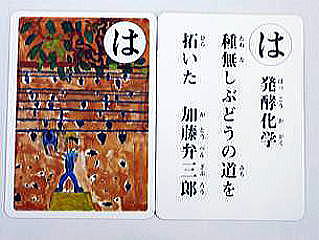 は
は
発酵化学
はっこうかがく
種無しぶどうの道を
たねな みち
拓いた 加藤弁三郎
ひら かとうべんざぶろう